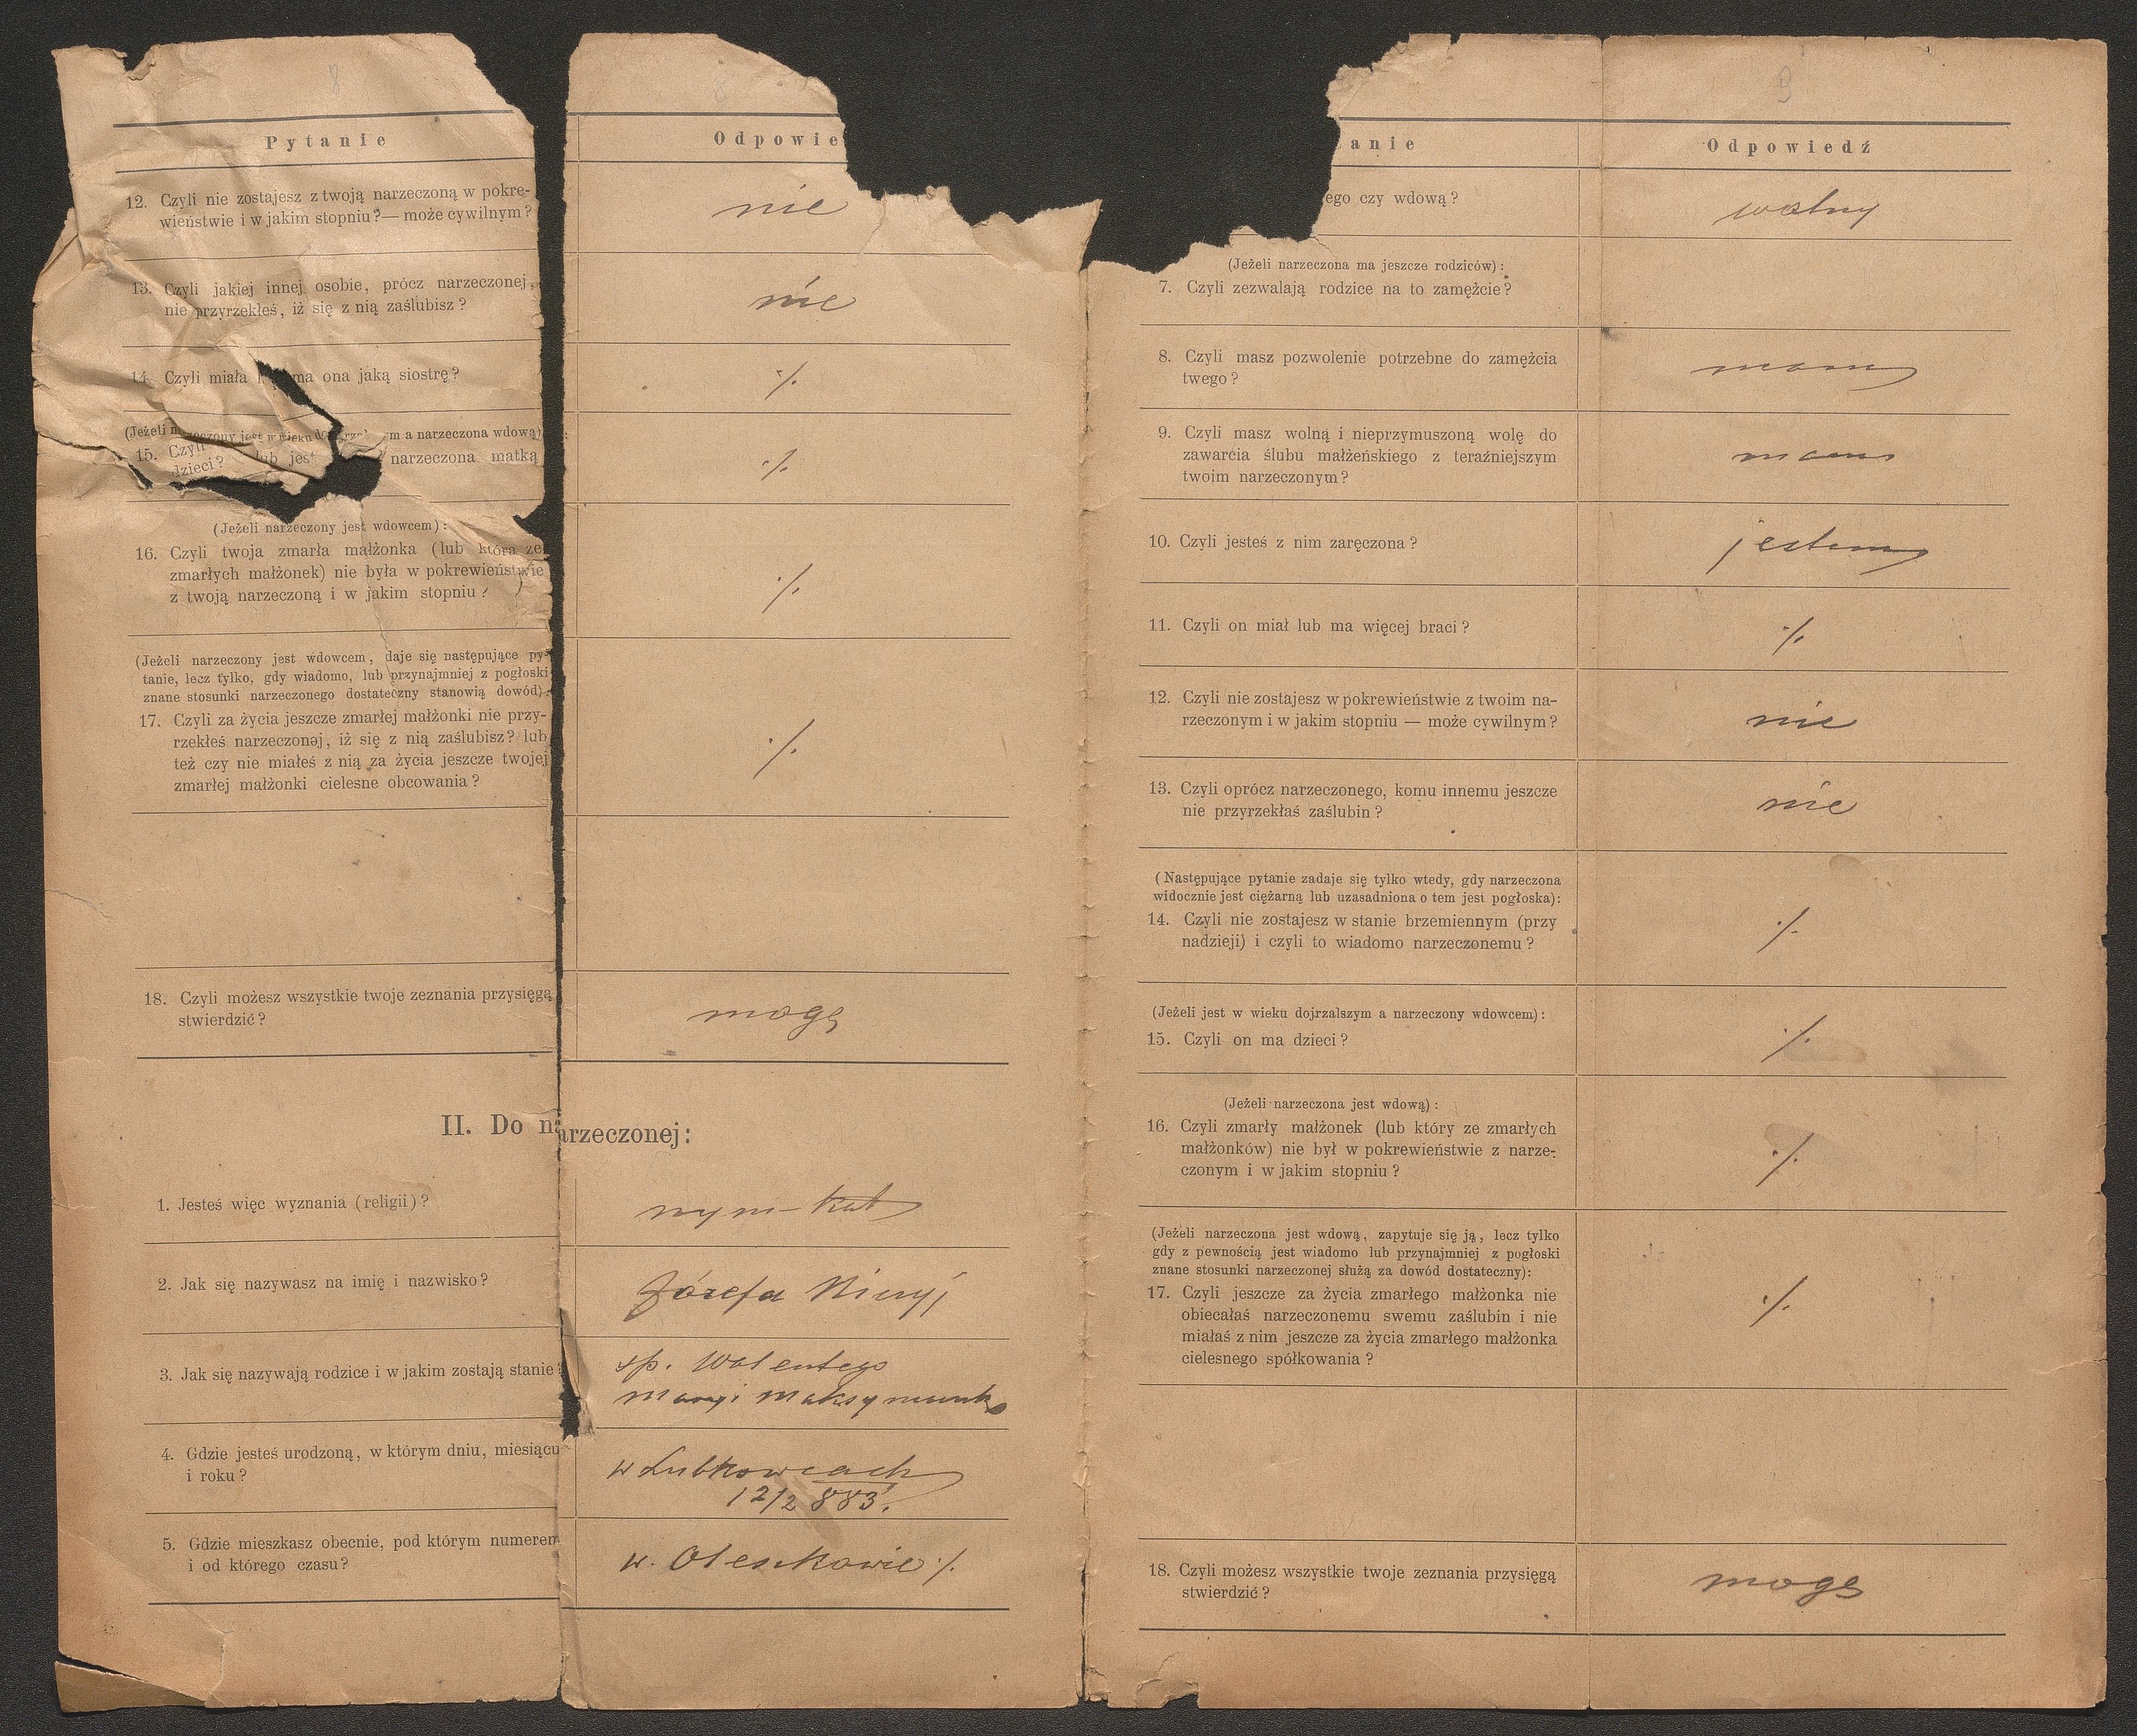 8
Pytanie
Odpowie
12. Czyli nie zostajesz z twoją narzeczoną w pokre-
wieństwie i w jakim stopniu?— może cywilnym?
nie
13. Czyli jakiej innej osobie, prócz narzeczonej,
nie przyrzekłeś, iż się z nią zaślubisz?
nie
14. Czyli miała ma ona jaką siostrę?
·/.
(Jeżeli narzeczony jest w wieku m a narzeczona wdową)
15. Czyli lub jest narzeczona matką
dzieci?
·/.
(Jeżeli narzeczony jest wdowcem):
16. Czyli twoja zmarła małżonka (lub która ze
zmarłych małżonek) nie była w pokrewieństwie
z twoją narzeczoną i w jakim stopniu?
·/.
(Jeżeli narzeczony jest wdowcem, daje się następujące py-
tanie, lecz tylko, gdy wiadomo, lub przynajmniej z pogłoski
znane stosunki narzeczonego dostateczny stanowią dowód).
17. Czyli za życia jeszcze zmarłej małżonki nie przy-
rzekłeś narzeczonej, iż się z nią zaślubisz? lub
też czy nie miałeś z nią za życia jeszcze twojej
zmarłej małżonki cielesne obcowania?
·/.
18. Czyli możesz wszystkie twoje zeznania przysięgą
stwierdzić?
mogę
II. Do narzeczonej:
1. Jesteś więc wyznania (religii)?
rzym-kat
2. Jak się nazywasz na imię i nazwisko?
Józefa
3. Jak się nazywają rodzice i w jakim zostają stanie?
sp. Walentego
Maryi Maksymiuk
4. Gdzie jesteś urodzoną, w którym dniu, miesiącu
i roku?
w
12/2 883.
5. Gdzie mieszkasz obecnie, pod którym numerem
i od którego czasu?
w. Oleszkowie ·/.
9
anie
Odpowiedź
ego czy wdową?
wolny
(Jeżeli narzeczona ma jeszcze rodziców):
7. Czyli zezwalają rodzice na to zamęźcie?
8. Czyli masz pozwolenie potrzebne do zamężcia
twego?
mam
9. Czyli masz wolną i nieprzymuszoną wolę do
zawarcia ślubu małżeńskiego z teraźniejszym
twoim narzeczonym?
mam
10. Czyli jesteś z nim zaręczona?
jestem
11. Czyli on miał lub ma więcej braci?
·/.
12. Czyli nie zostajesz w pokrewieństwie z twoim na-
rzeczonym i w jakim stopniu — może cywilnym?
nie
13. Czyli oprócz narzeczonego, komu innemu jeszcze
nie przyrzekłaś zaślubin?
nie
(Następujące pytanie zadaje się tylko wtedy, gdy narzeczona
widocznie jest ciężarną lub uzasadniona o tem jest pogłoska):
14. Czyli nie zostajesz w stanie brzemiennym (przy
nadzieji) i czyli to wiadomo narzeczonemu?
·/.
(Jeżeli jest w wieku dojrzalszym a narzeczony wdowcem):
15. Czyli on ma dzieci?
·/.
(Jeżeli narzeczona jest wdową):
16. Czyli zmarły małżonek (lub który ze zmarłych
małżonków) nie był w pokrewieństwie z narze-
czonym i w jakim stopniu?
·/.
(Jeżeli narzeczona jest wdową, zapytuje się ją, lecz tylko
gdy z pewnością jest wiadomo lub przynajmniej z pogłoski
znane stosunki narzeczonej służą za dowód dostateczny):
17. Czyli jeszcze za życia zmarłego małżonka nie
obiecałaś narzeczonemu swemu zaślubin i nie
miałaś z nim jeszcze za życia zmarłego małżonka
cielesnego spółkowania?
·/.
18. Czyli możesz wszystkie twoje zeznania przysięgą
stwierdzić?
mogę